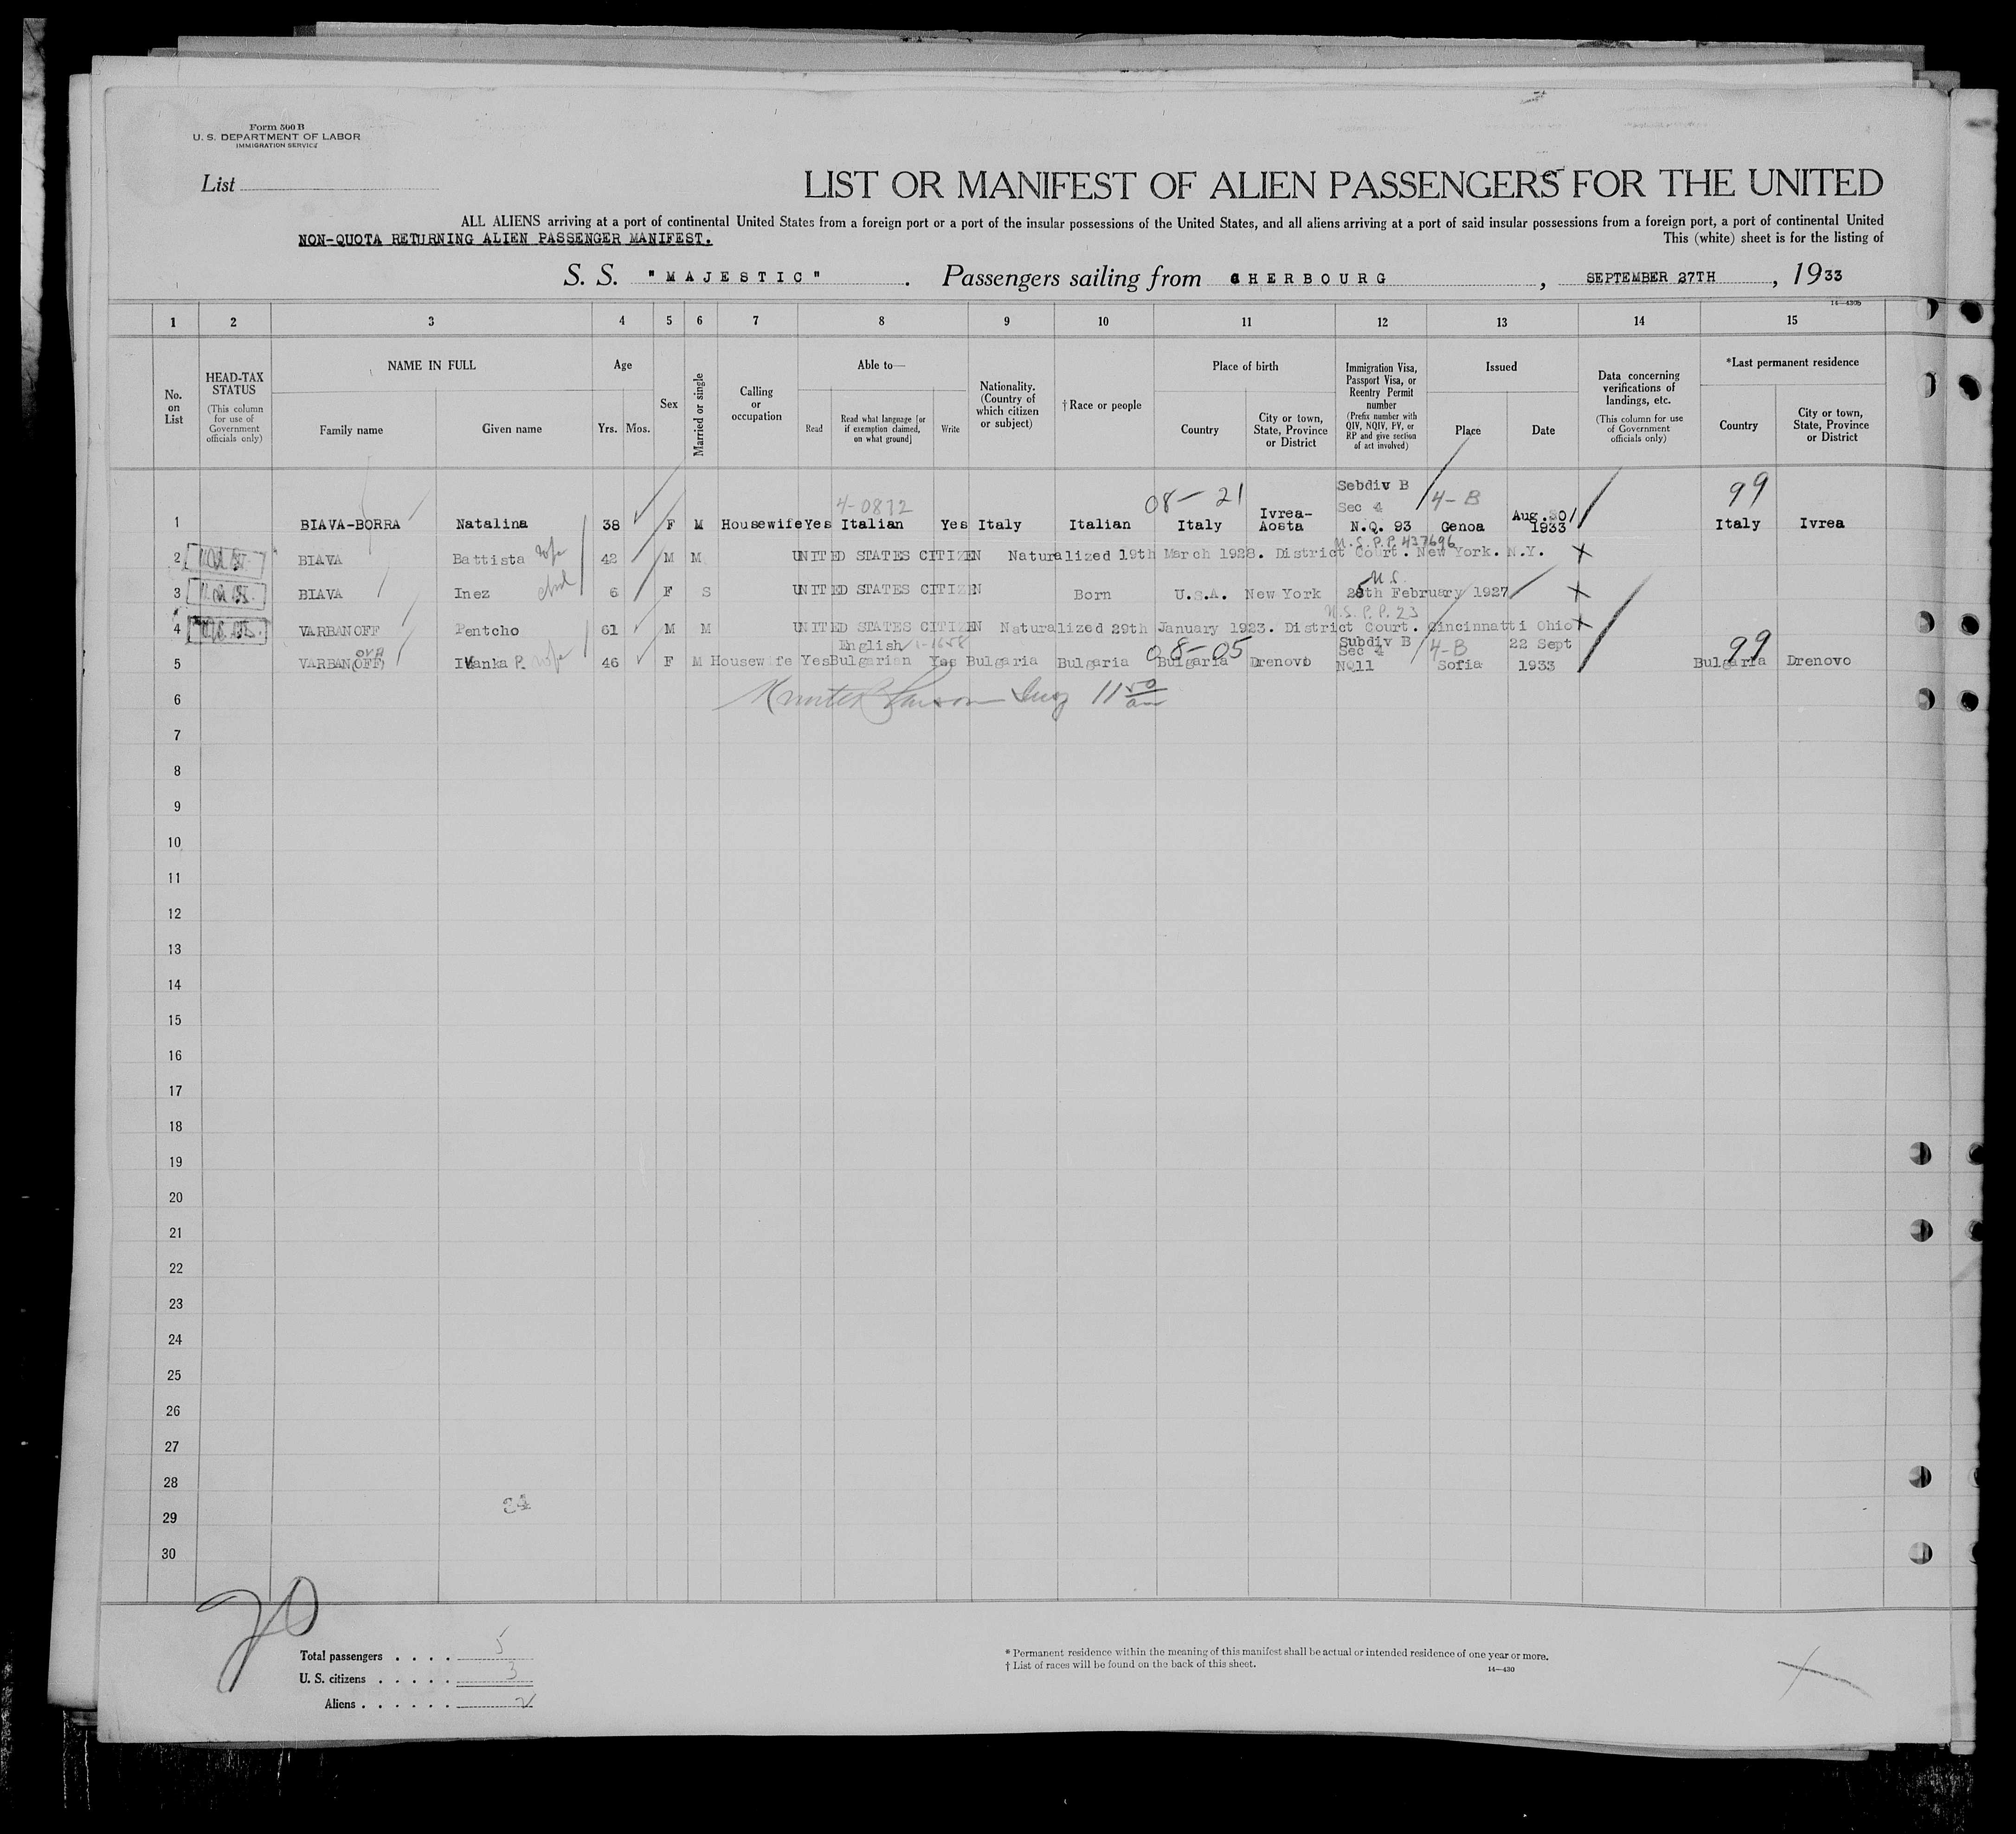 Form 500 B
U. S. DEPARTMENT OF LABOR
IMMIGRATION SERVICE
List
LIST OR MANIFEST OF ALIEN PASSENGERS FOR THE UNITED
ALL ALIENS arriving at a port of continental United States from a foreign port or a port of the insular possessions of the United States, and all aliens arriving at a port of said insular possessions from a foreign port, a port of continental United
NON-QUOTA RETURNING ALIEN PASSENGER MANIFEST.
This (white) sheet is for the listing of
S. S. "MAJESTIC" . Passengers sailing from CHERBOURG , SEPTEMBER 27TH , 1933
14—430b
1 2 3 4 5 6 7 8 9 10 11 12 13 14 15
No. on List
HEAD-TAX STATUS
(This column for use of Government officials only)
NAME IN FULL
Family name
Given name
Age
Yrs.
Mos.
Sex
Married or single
Calling or occupation
Able to—
Read
Read what language [or if exemption claimed, on what ground]
Write
Nationality. (Country of which citizen or subject)
† Race or people
Place of birth
Country
City or town, State, Province or District
Immigration Visa, Passport Visa, or Reentry Permit number
(Prefix number with QIV, NQIV, PV, or RP and give section of act involved)
Issued
Place
Date
Data concerning verifications of landings, etc.
(This column for use of Government officials only)
*Last permanent residence
Country
City or town, State, Province or District
4-0872 08-21 Sebdiv B Sec 4 4-B 99
1 BIAVA-BORRA Natalina 38 F M Housewife Yes Italian Yes Italy Italian Italy Ivrea-Aosta N.Q. 93 Genoa Aug. 30 1933 Italy Ivrea
U.S.P.P. 437696
2 BIAVA Battista 42 M M UNITED STATES CITIZEN Naturalized 19th March 1928. District Court. New York. N.Y. X
3 BIAVA Inez 6 F S UNITED STATES CITIZEN Born U.S.A. New York 25th February 1927 X
U.S.P.P. 23
4 VARBANOFF Pentcho 61 M M UNITED STATES CITIZEN Naturalized 29th January 1923. District Court. Cincinnatti Ohio X
OVA English 08-05 Subdiv B Sec 4 4-B 22 Sept 99
5 VARBAN(OFF) Ivanka P. wife 46 F M Housewife Yes Bulgarian Yes Bulgaria Bulgaria Bulgaria Drenovo NQ11 Sofia 1933 Bulgaria Drenovo
6
7
8
9
10
11
12
13
14
15
16
17
18
19
20
21
22
23
24
25
26
27
28
24
29
30
20
Total passengers . . . . 5
U. S. citizens . . . . . 3
Aliens . . . . . . 2
* Permanent residence within the meaning of this manifest shall be actual or intended residence of one year or more.
† List of races will be found on the back of this sheet.
14—430